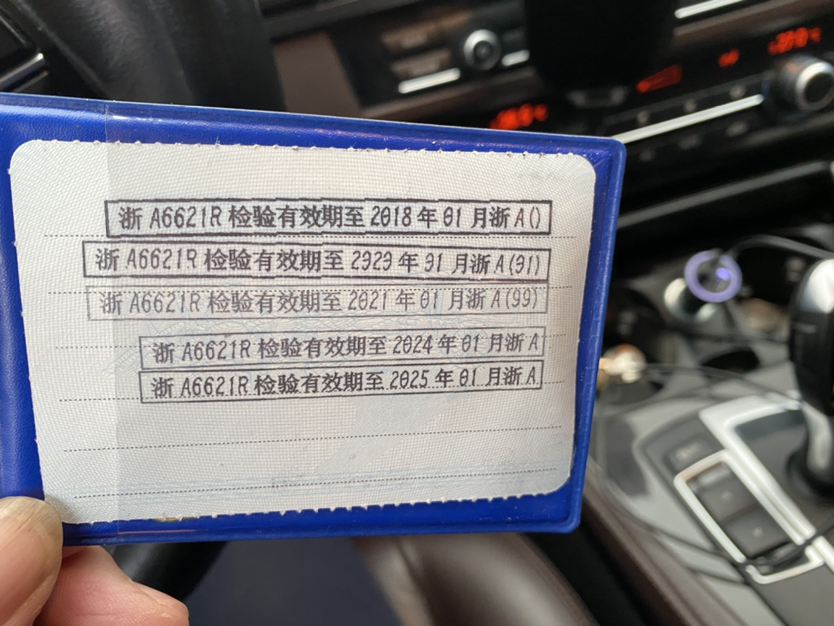 浙 A6621R 检验有效期至 2018 年 01 月浙 A()
浙 A6621R 检验有效期至 2020 年 01 月浙 A(01)
浙 A6621R 检验有效期至 2021 年 01 月浙 A(99)
浙 A6621R 检验有效期至 2024 年 01 月浙 A
浙 A6621R 检验有效期至 2025 年 01 月浙 A